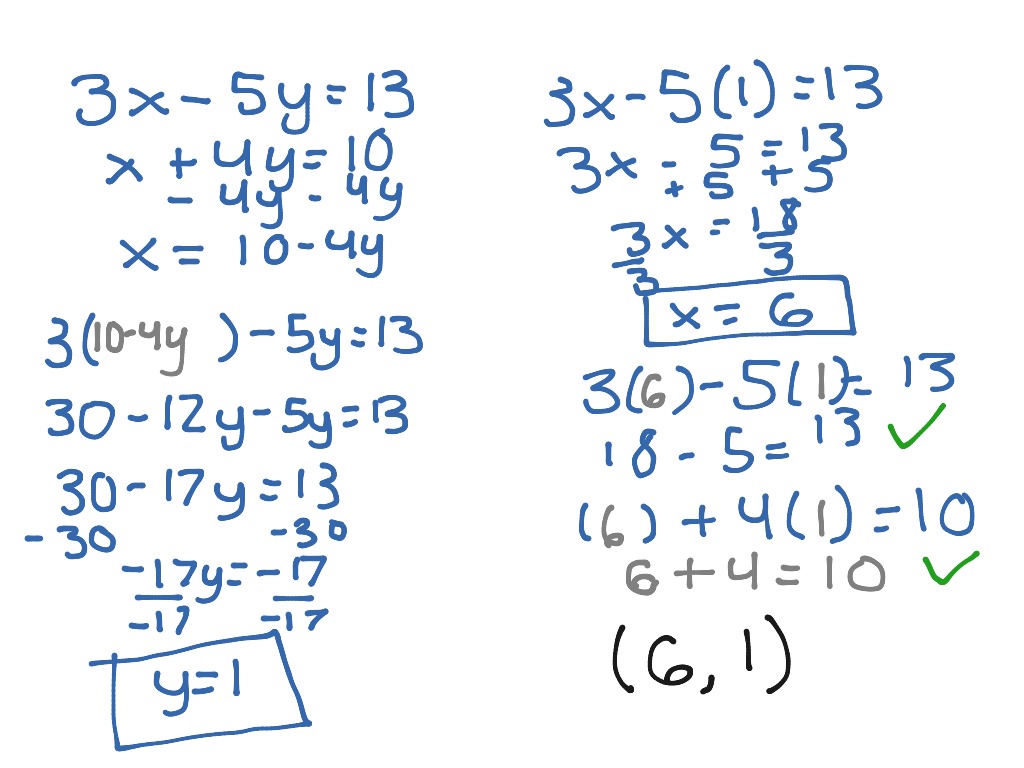 3x - 5y = 13
x + 4y = 10
- 4y - 4y
x = 10 - 4y
3(10-4y) - 5y = 13
30 - 12y - 5y = 13
30 - 17y = 13
-30 -30
-17y = -17
-17 -17
y = 1
3x - 5(1) = 13
3x - 5 = 13
+ 5 + 5
3x = 18
3 3
x = 6
3(6) - 5(1) = 13
18 - 5 = 13 ✓
(6) + 4(1) = 10
6 + 4 = 10 ✓
(6, 1)